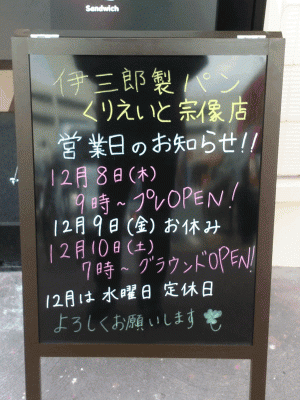 Sandwich
伊三郎製パン
くりえいと宗像店
営業日のお知らせ!!
12月8日(木)
9時~プレOPEN!
12月9日(金)お休み
12月10日(土)
7時~グラウンドOPEN!
12月は水曜日 定休日
よろしくお願いします